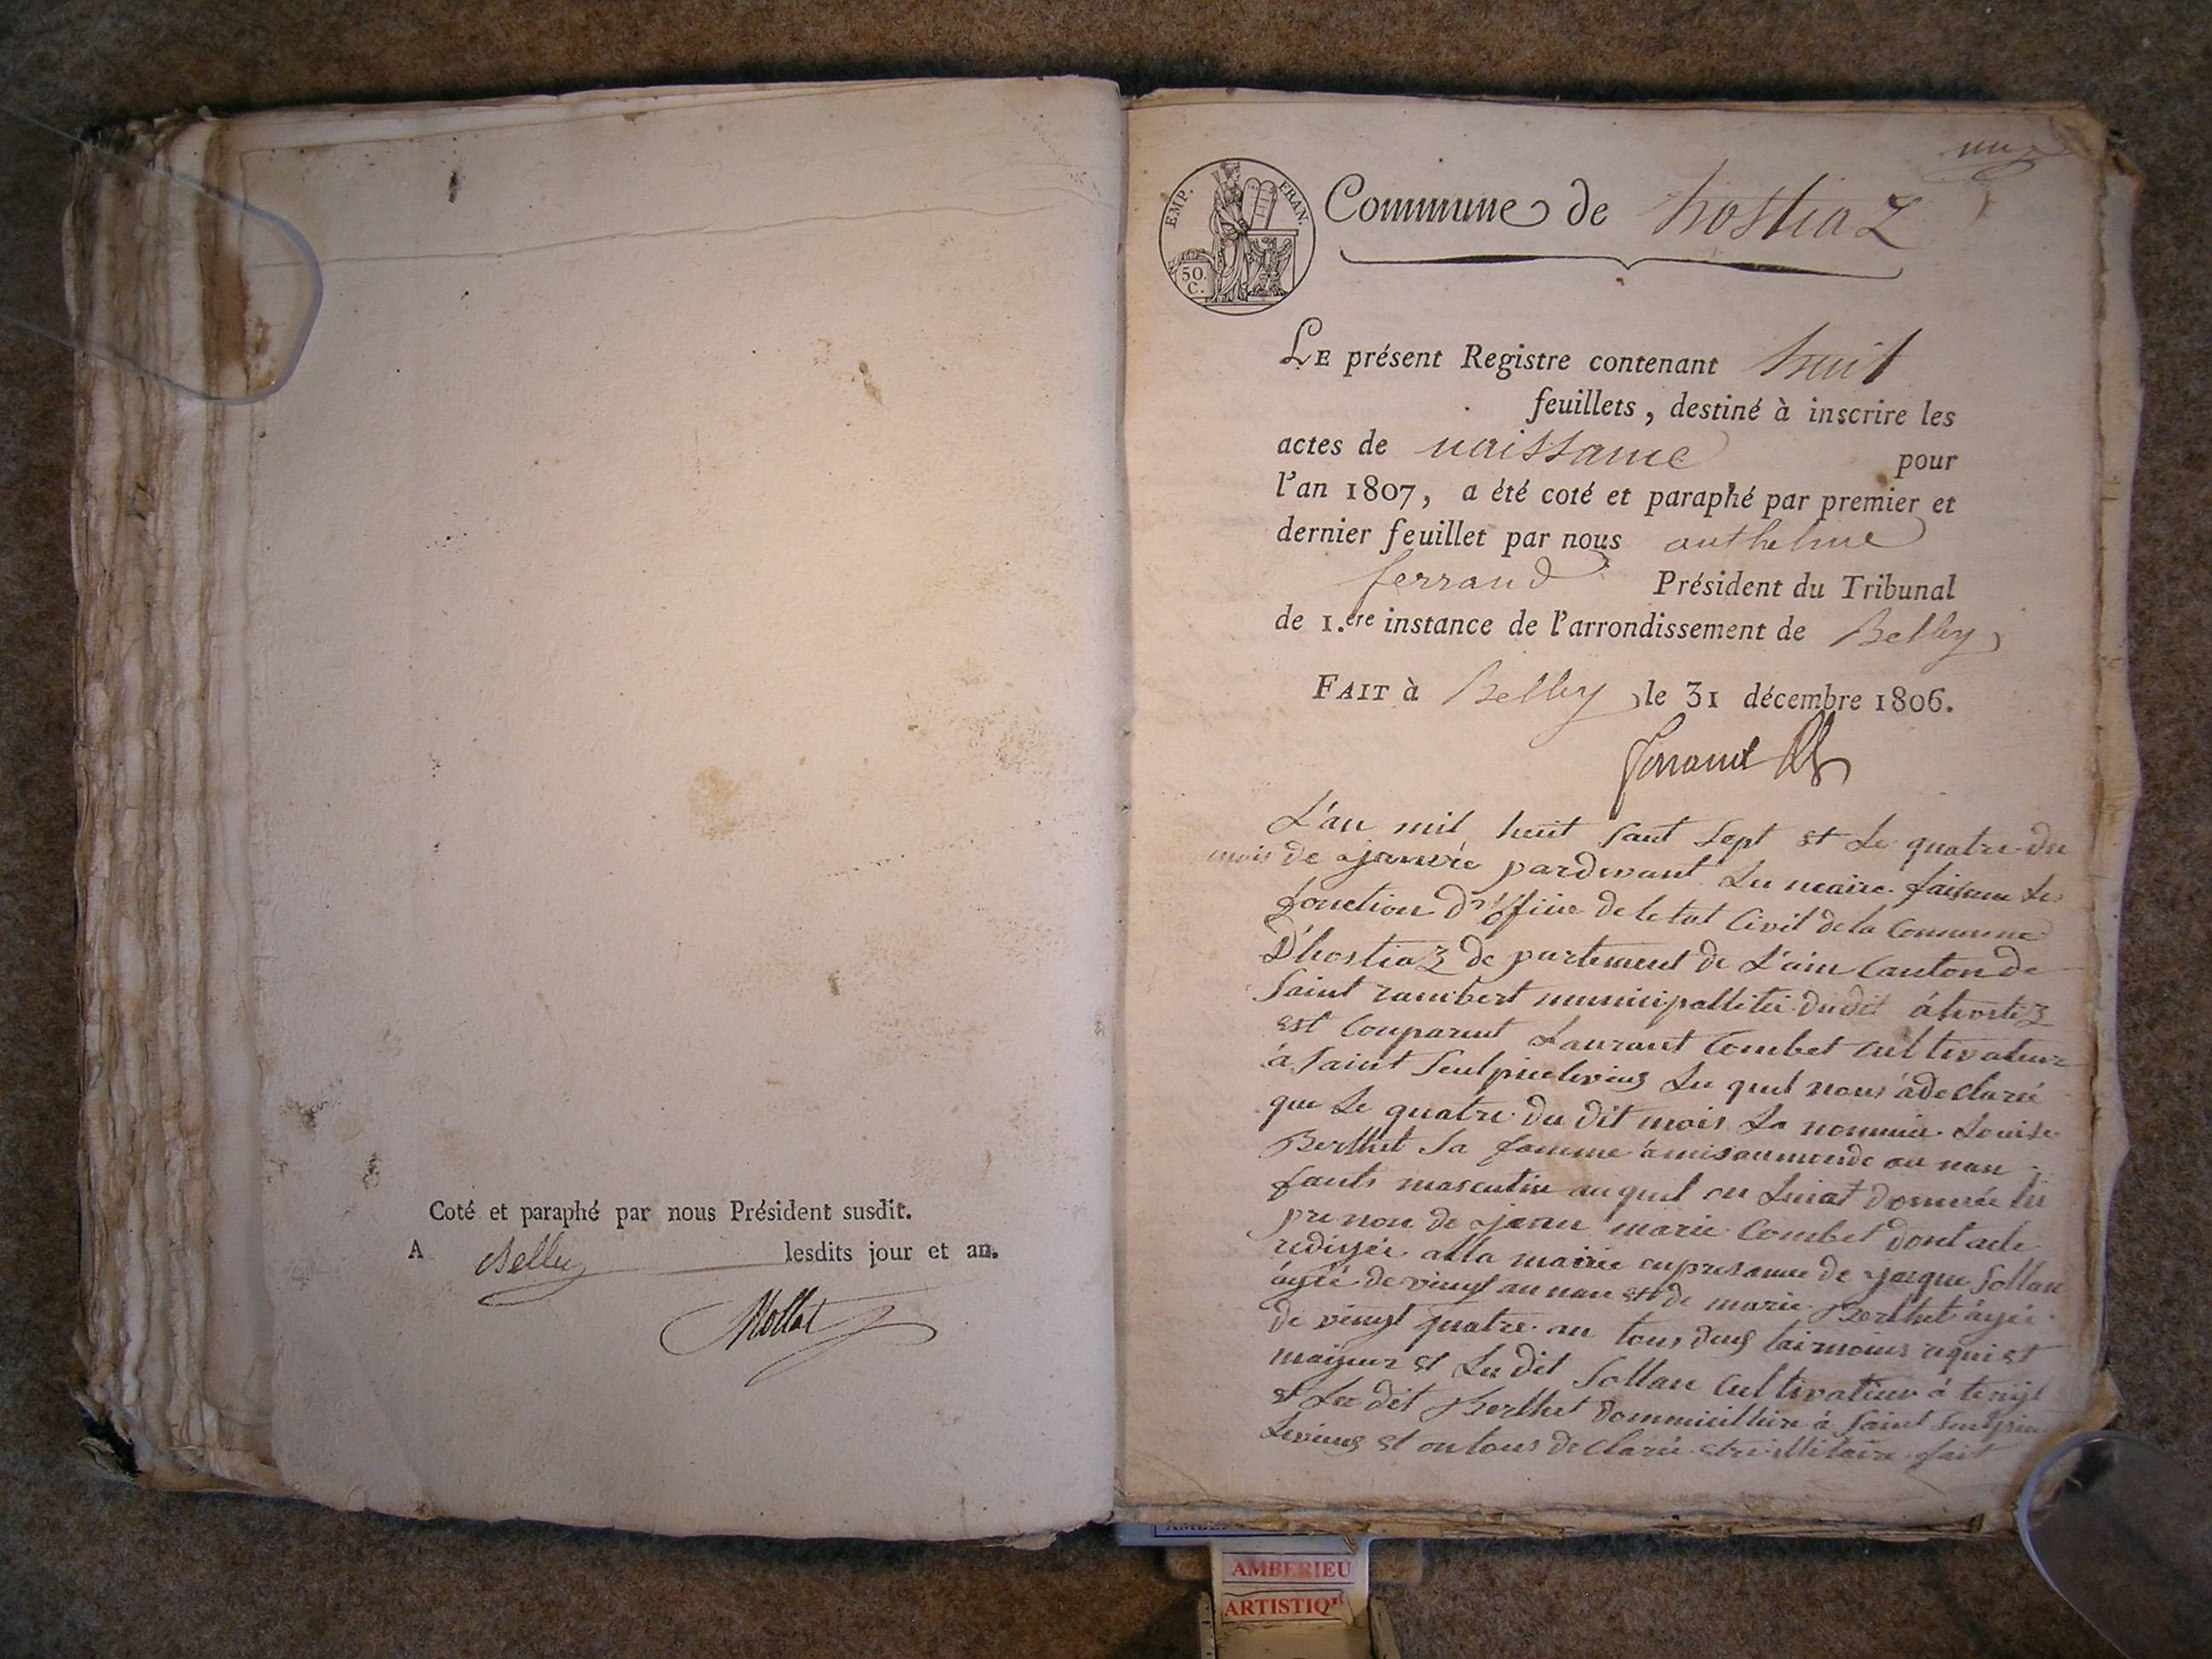 Coté et paraphé par nous Président susdit.
A Belley lesdits jour et an.
Mollet
un
EMP. FRAN.
50.
C.
Commune de hostiaz
LE présent Registre contenant huit
feuillets, destiné à inscrire les
actes de naissance pour
l'an 1807, a été coté et paraphé par premier et
dernier feuillet par nous anthelme
ferrand Président du Tribunal
de 1.ere instance de l'arrondissement de Belley
FAIT à Belley le 31 décembre 1806.
ferrand
L'an mil huit sant sept et le quatre du
mois de janvié pardevant Lu maire faisant les
fonction d'officie de letat Civil de la Commune
D'hostiaz de partement de L'ain Canton de
Saint rambert municipallitéi dudit áhostiz
est Comparut Laurant Combet Cultivateur
à Saint Sulpice Lu quel nous àdeclaréé
que Le quatre du dit mois La nommée Louise
Berthet Sa famme à mis au monde au nan
fants masculin auquel on Luiat donnée lu
prenon de jean marie Combet dont acte
redigée alla mairie en presance de jaque Sollan
âgéé de vingt au nan et de marie Berthet âgéé
de vingt quatre an tous deus tairmoins requi et
maijeur et Lu dit Sollan Cultivateur à
et Lu dit Berthet à Saint
et ontous declaréé fait
AMBERIEU
ARTISTIQ